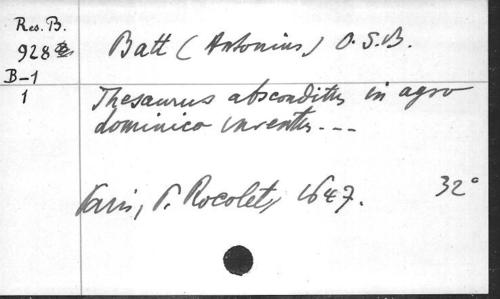 Res. B.
928
B-1
1
Batt (Antonius) O.S.B.
Thesaurus absconditus in agro
dominico inventus ---
Paris, P. Rocolet, 1647.
32°